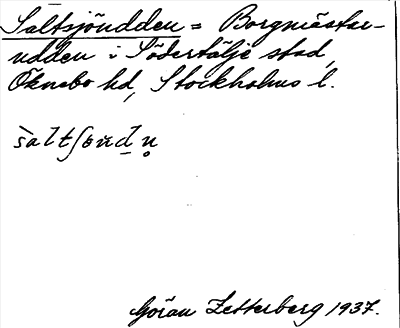 Saltsjöudden = Borgmästar-
udden i Södertälje stad,
Öknebo hd, Stockholms l.
Göran Zetterberg 1937.